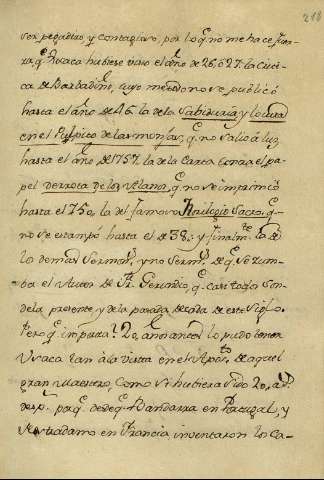 210
ser pegadizo y contagioso, por lo q. no me hace fuer-
za, q. Usaca hubiese visto el año de 26, ò 27. la
de Barbadiño, cuyo metodo no se publicó
hasta el año de 46. la de la Sabiduria, y locura
en el Pulpito de las monjas, q. no salió à luz
hasta el año de 1757. la de la Carta contra el pa-
pel derrota de los Alanos, q. no se imprimió
hasta el 750, la del famoso Florilogio Sacro, q.
no se estampó hasta el de 38; y finalm.te la de
lo demas Sermon.s, y no Serm.s de q. se zum-
ba el Autor de Fr. Gerundio, q. casi todos son
de la presente, y de la pasada decada de este Siglo.
Pero q. importa? 20. años antes lo pudo tener
Usaca tan à la vista en el de aquel
gran Maestro, como si hubiera sido 20. a.s
desp.s pa q. desde q. Bandarra en Portugal, y
Nostradamo en Francia inventaron los Ca-